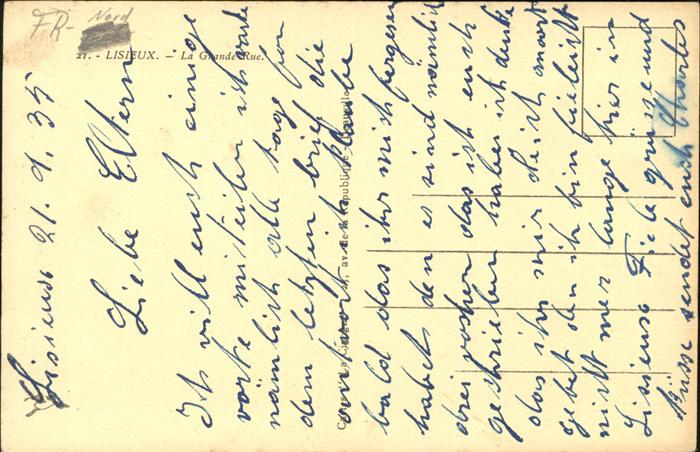 FR- Nord
21. - LISIEUX. - La Grande Rue.
Lisieuse 21.9.35
Liebe Eltern
Ich will euch einige
worte mitteilen ich warte
nämlich alle tage von
dem letzten brief die
antwort ich glaube
bald das ihr mich fergesen
habets den es sind nämlich
drei wochen das ich euch
geschrieben habe ich denke
das ihr mir gleich anwort
gebet den ich bin fieleicht
nicht mer lange hier in
Lisieuse Fiele grüsse und
Küsse sendet euch Charles
av. de la République